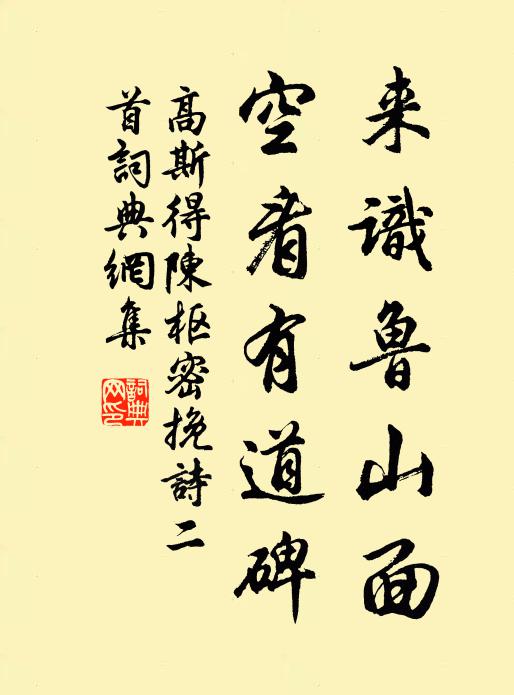 来識鲁山面
空看有道碑
高斯得陳枢密挽詩二
首詞典網集
詞典
网印